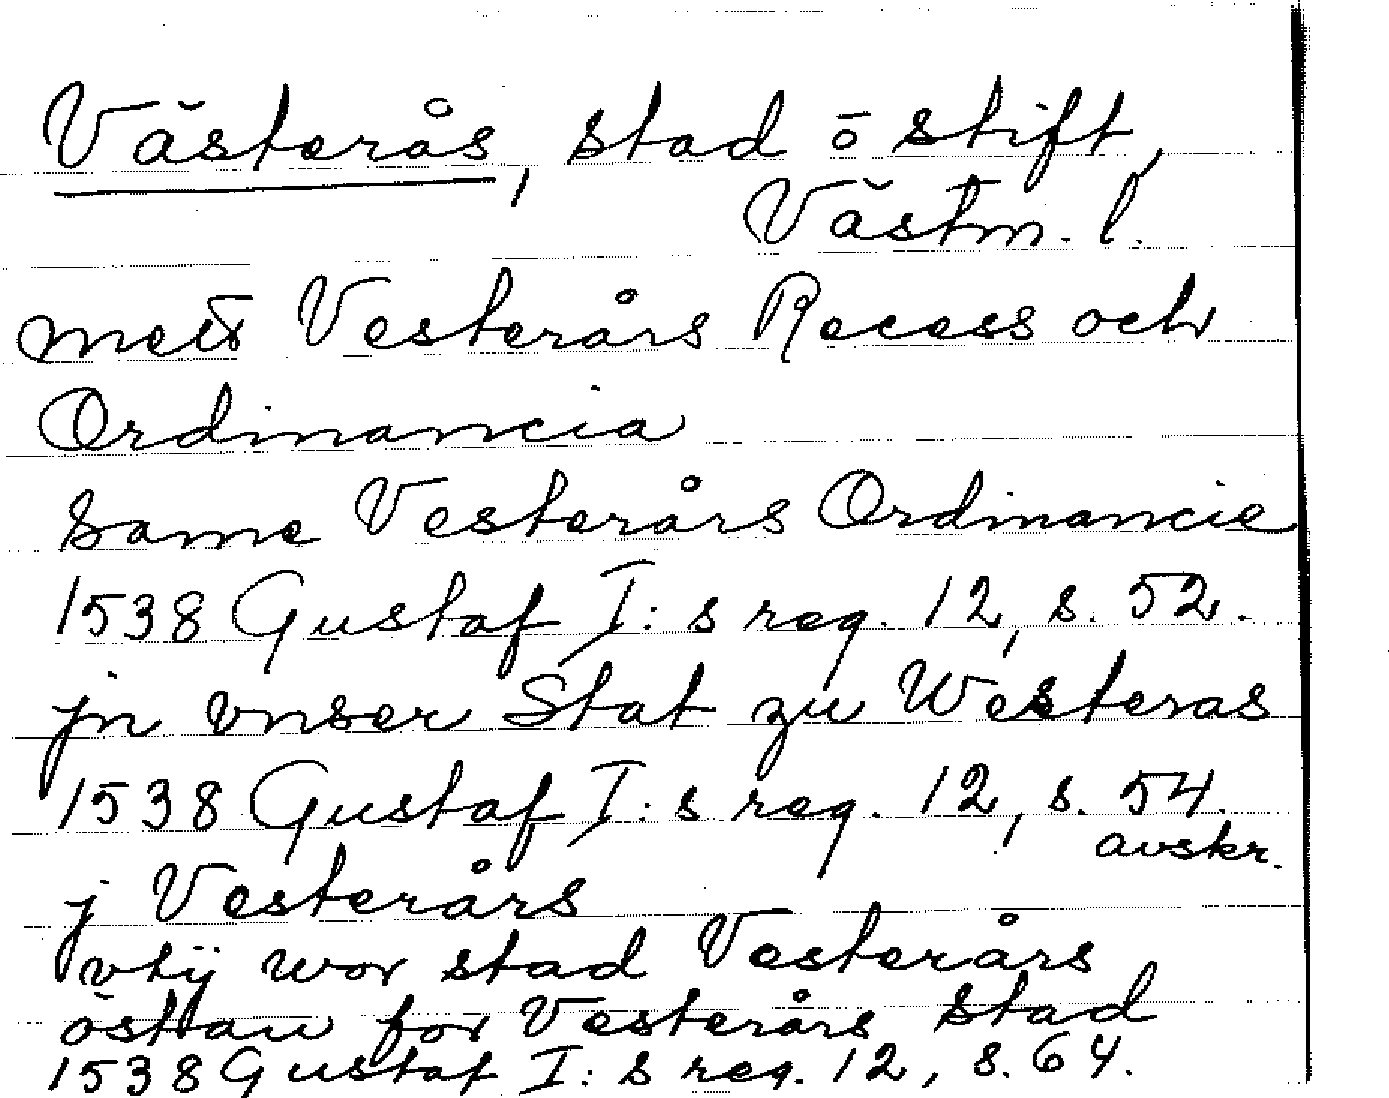 Västerås, stad o stift,
Västm. l.
mett Vesterårs Recess och
Ordinancia
same Vesterårs Ordinancie
1538 Gustaf I:s reg. 12, s. 52.
jn vnser Stat zu Westeras
1538 Gustaf I:s reg. 12, s. 54.
avskr.
j Vesterårs
vtij wor stad Vesterårs
östan for Vesterårs stad
1538 Gustaf I:s reg. 12, s. 64.